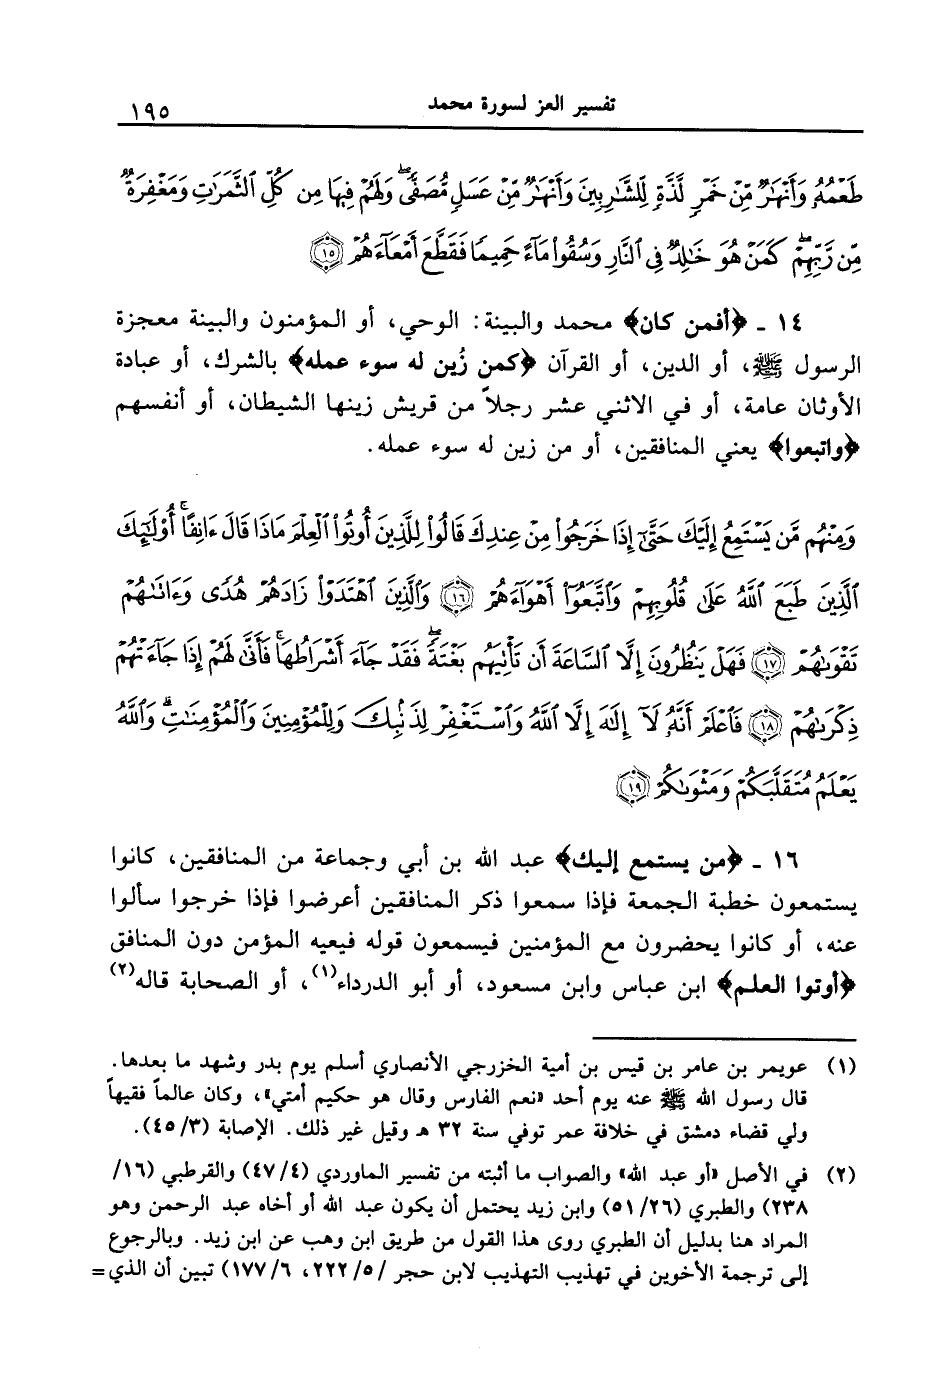 تفسير العز لسورة محمد
١٩٥
طَعْمُهُۥ وَأَنْهَٰرٌ مِّنْ خَمْرٍ لَّذَّةٍ لِّلشَّٰرِبِينَ وَأَنْهَٰرٌ مِّنْ عَسَلٍ مُّصَفًّى ۖ وَلَهُمْ فِيهَا مِن كُلِّ ٱلثَّمَرَٰتِ وَمَغْفِرَةٌ
مِّن رَّبِّهِمْ ۖ كَمَنْ هُوَ خَٰلِدٌ فِى ٱلنَّارِ وَسُقُوا۟ مَآءً حَمِيمًا فَقَطَّعَ أَمْعَآءَهُمْ ﴿١٥﴾
١٤ ـ ﴿أفمن كان﴾ محمد والبينة: الوحي، أو المؤمنون والبينة معجزة
الرسول ﷺ، أو الدين، أو القرآن ﴿كمن زُين له سوء عمله﴾ بالشرك، أو عبادة
الأوثان عامة، أو في الاثني عشر رجلاً من قريش زينها الشيطان، أو أنفسهم
﴿واتبعوا﴾ يعني المنافقين، أو من زين له سوء عمله.
وَمِنْهُم مَّن يَسْتَمِعُ إِلَيْكَ حَتَّىٰٓ إِذَا خَرَجُوا۟ مِنْ عِندِكَ قَالُوا۟ لِلَّذِينَ أُوتُوا۟ ٱلْعِلْمَ مَاذَا قَالَ ءَانِفًا ۚ أُو۟لَٰٓئِكَ
ٱلَّذِينَ طَبَعَ ٱللَّهُ عَلَىٰ قُلُوبِهِمْ وَٱتَّبَعُوٓا۟ أَهْوَآءَهُمْ ﴿١٦﴾ وَٱلَّذِينَ ٱهْتَدَوْا۟ زَادَهُمْ هُدًى وَءَاتَىٰهُمْ
تَقْوَىٰهُمْ ﴿١٧﴾ فَهَلْ يَنظُرُونَ إِلَّا ٱلسَّاعَةَ أَن تَأْتِيَهُم بَغْتَةً ۖ فَقَدْ جَآءَ أَشْرَاطُهَا ۚ فَأَنَّىٰ لَهُمْ إِذَا جَآءَتْهُمْ
ذِكْرَىٰهُمْ ﴿١٨﴾ فَٱعْلَمْ أَنَّهُۥ لَآ إِلَٰهَ إِلَّا ٱللَّهُ وَٱسْتَغْفِرْ لِذَنۢبِكَ وَلِلْمُؤْمِنِينَ وَٱلْمُؤْمِنَٰتِ ۗ وَٱللَّهُ
يَعْلَمُ مُتَقَلَّبَكُمْ وَمَثْوَىٰكُمْ ﴿١٩﴾
١٦ ـ ﴿من يستمع إليك﴾ عبد الله بن أبي وجماعة من المنافقين، كانوا
يستمعون خطبة الجمعة فإذا سمعوا ذكر المنافقين أعرضوا فإذا خرجوا سألوا
عنه، أو كانوا يحضرون مع المؤمنين فيسمعون قوله فيعيه المؤمن دون المنافق
﴿أوتوا العلم﴾ ابن عباس وابن مسعود، أو أبو الدرداء(١)، أو الصحابة قاله(٢)
(١) عويمر بن عامر بن قيس بن أمية الخزرجي الأنصاري أسلم يوم بدر وشهد ما بعدها.
قال رسول الله ﷺ عنه يوم أحد «نعم الفارس وقال هو حكيم أمتي»، وكان عالماً فقيهاً
ولي قضاء دمشق في خلافة عمر توفي سنة ٣٢ هـ وقيل غير ذلك. الإصابة (٤٥/٣).
(٢) في الأصل «أو عبد الله» والصواب ما أثبته من تفسير الماوردي (٤٧/٤) والقرطبي (١٦/
٢٣٨) والطبري (٥١/٢٦) وابن زيد يحتمل أن يكون عبد الله أو أخاه عبد الرحمن وهو
المراد هنا بدليل أن الطبري روى هذا القول من طريق ابن وهب عن ابن زيد. وبالرجوع
إلى ترجمة الأخوين في تهذيب التهذيب لابن حجر /٢٢٢/٥، ١٧٧/٦) تبين أن الذي=